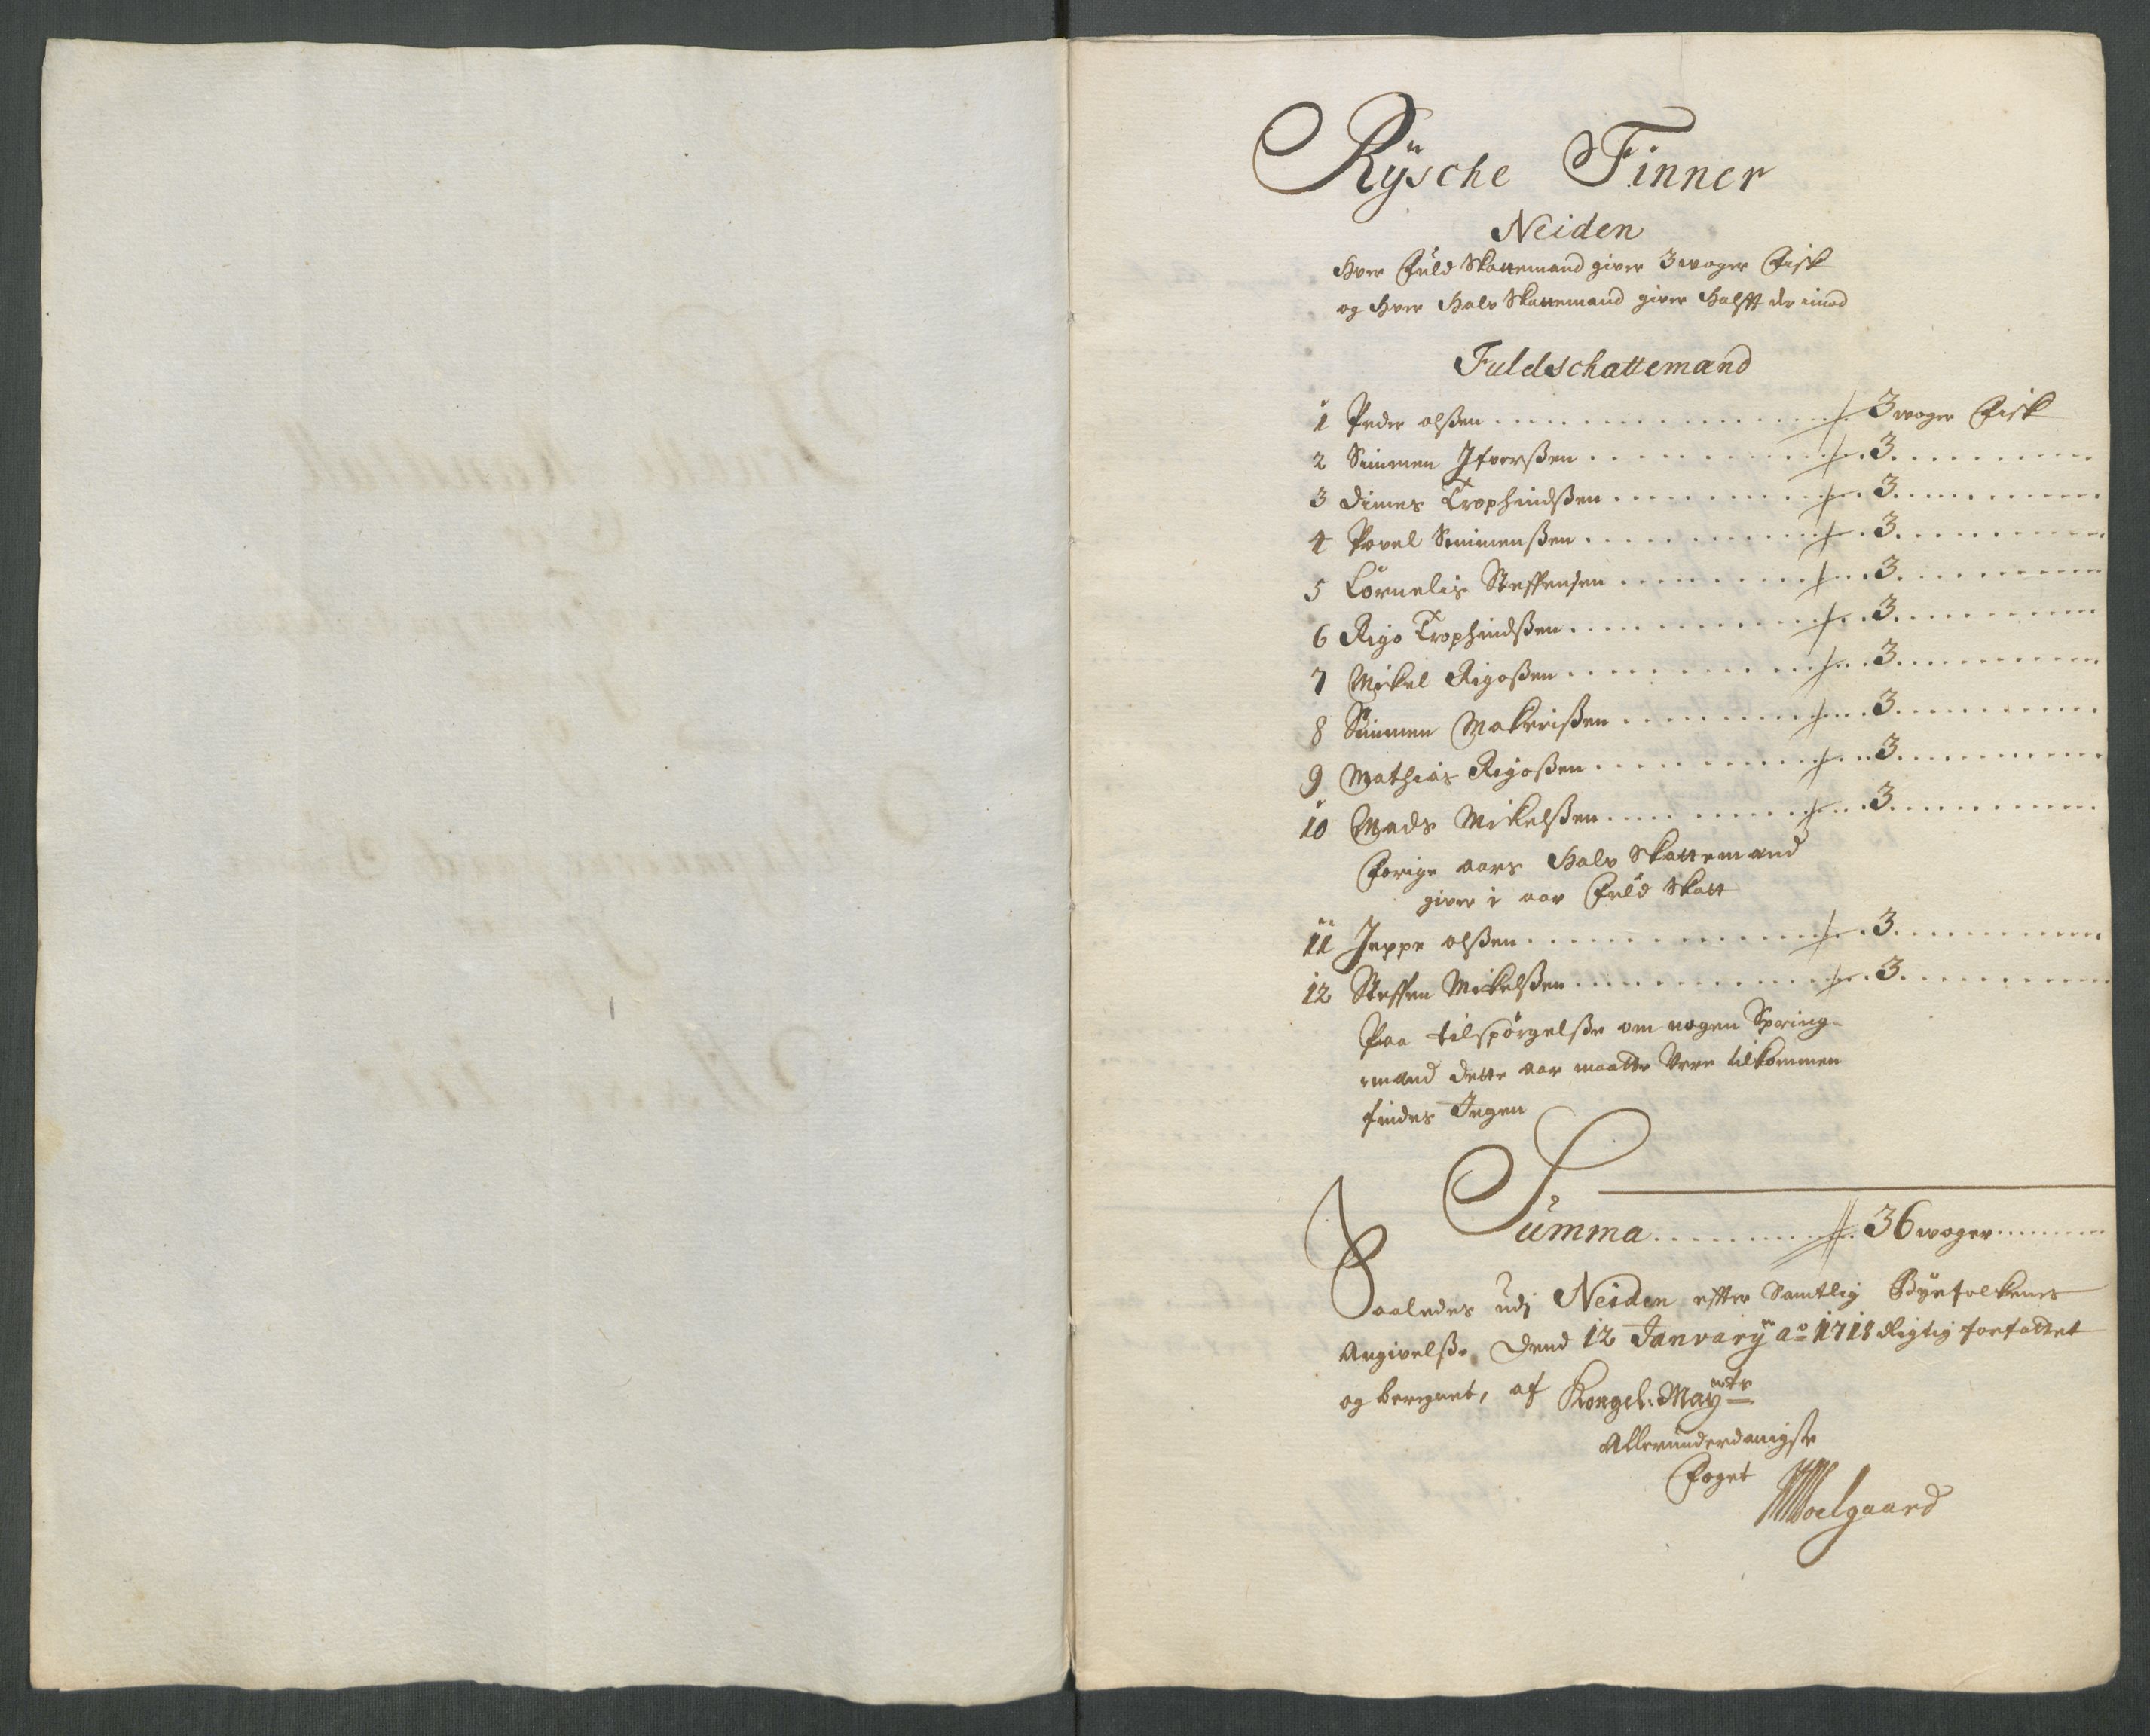 Rÿsche Finner
Neiden
Hver Fuld Skattemand giver 3 woger Fisk
og Hver Halv Skattemand giver Halfft der imod
Fuldschattemænd
1 Peder olßen 3 woger Fisk
2 Simmen Ifverßen 3
3 Dimes Trophindßen 3
4 Povel Simmenßen 3
5 Cornelis Steffensen 3
6 Rigo Trophindßen 3
7 Mickel Rigoßen 3
8 Simmen Makerißen 3
9 Mathias Rigoßen 3
10 Mads Mikelßen 3
Forige aars Halv Skattemænd
giver i aar Fuld Skatt
11 Jeppe olßen 3
12 Steffen Mikelßen 3
Paa tilspørgelße om nogen Spring-
mænd dette aar maatte Vere tilkommen
findes Ingen
Summa 36 woger
Saaledes udj Neiden effter Samtlig Byefolkenes
Angivelße Dend 12 Januarÿ ao 1718 Rigtig forfattet
og beregnet, af Kongel: Mayts
Allerunderdanigste
Foget
Woelgaard